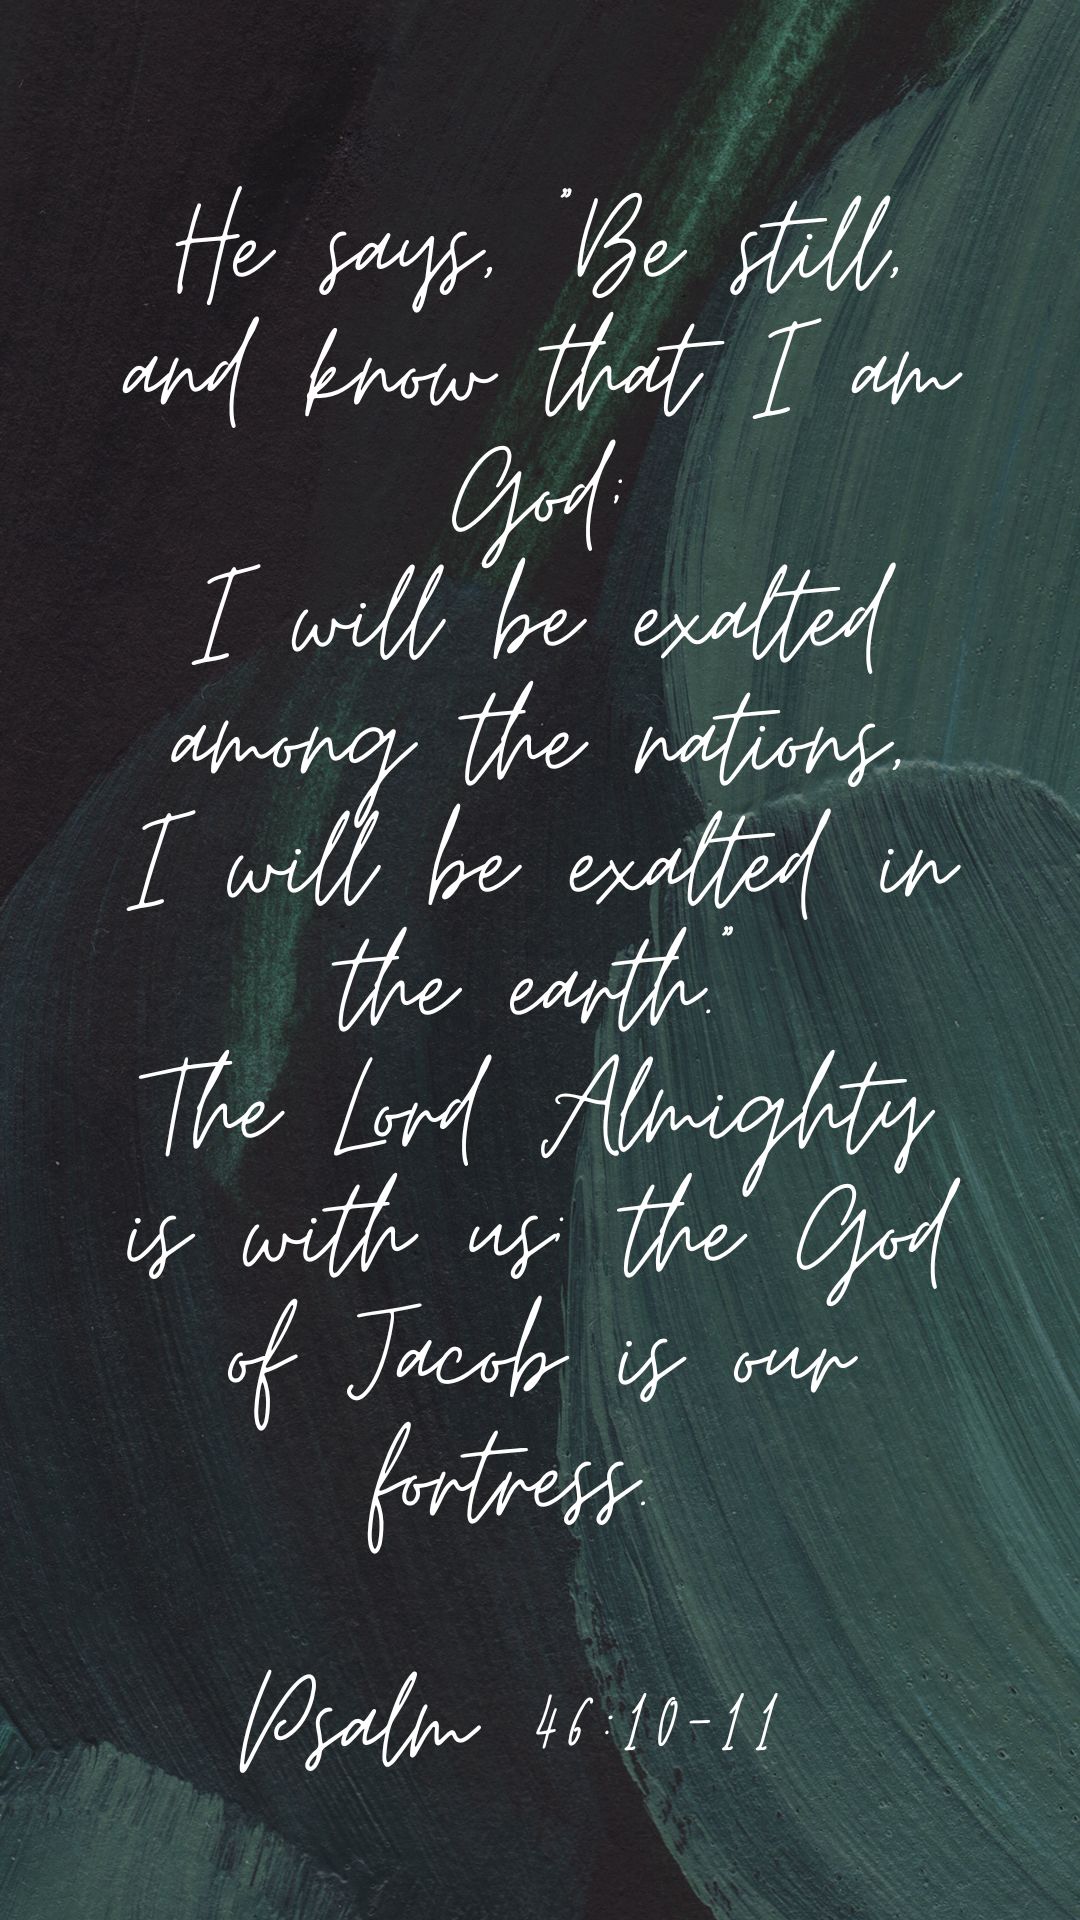 He says, "Be still,
and know that I am
God;
I will be exalted
among the nations,
I will be exalted in
the earth."
The Lord Almighty
is with us; the God
of Jacob is our
fortress.
Psalm 46:10-11